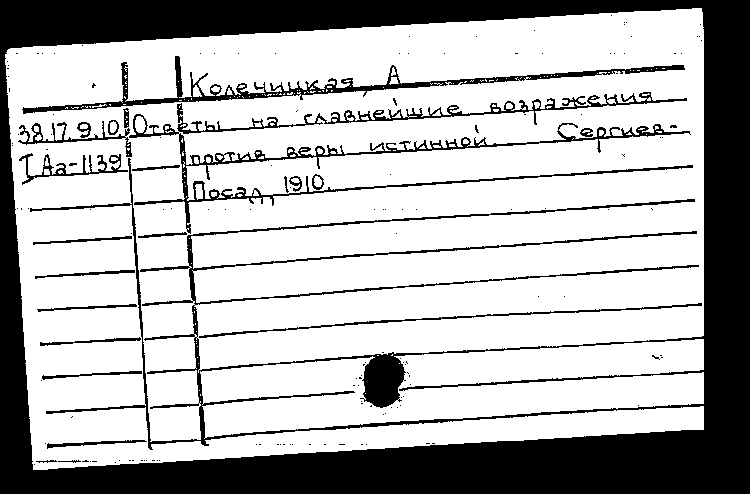 Колечицкая, А
38.17.9.10 Ответы на главнейшие возражения
I Аа-1139 против веры истинной. Сергиев-
Посад, 1910.